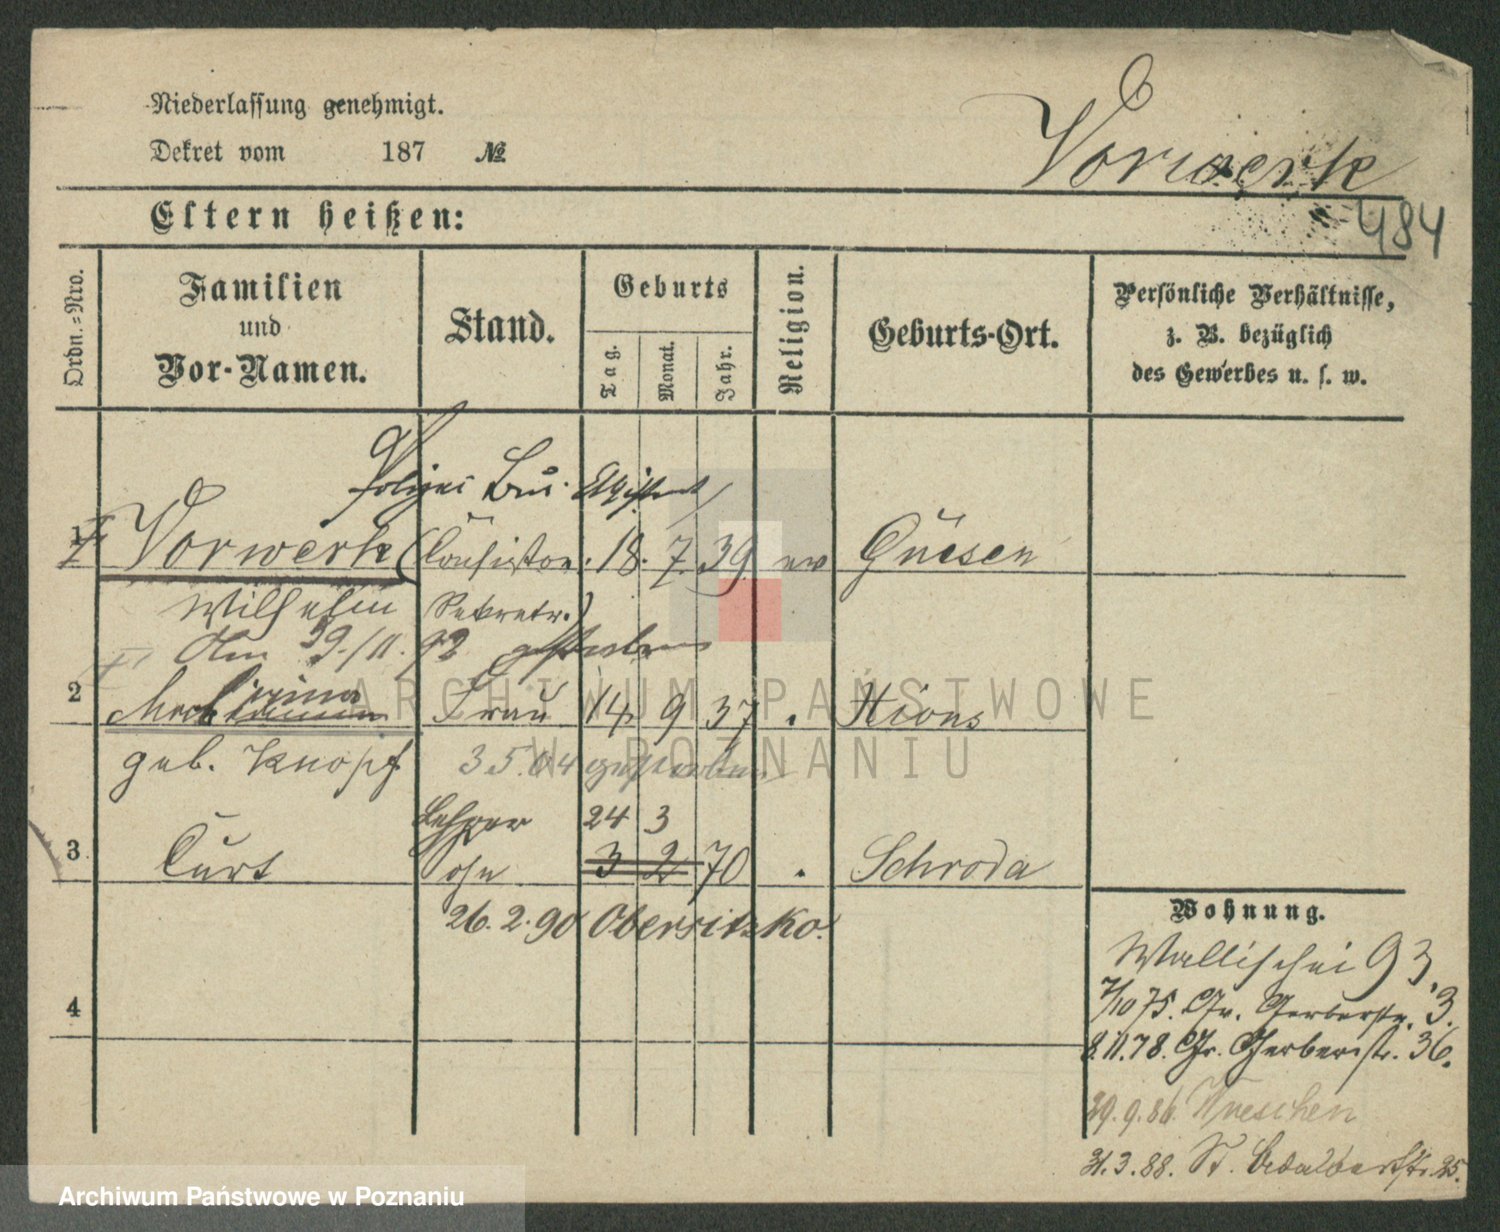 Niederlassung genehmigt.
Dekret vom 187 №
Vorwerk
484
Eltern heißen:
Ordn.=Nro.
Familien
und
Vor-Namen.
Stand.
Geburts
Tag.
Monat.
Jahr.
Religion.
Geburts-Ort.
Persönliche Verhältnisse,
z. B. bezüglich
des Gewerbes u. s. w.
Polizei Bur. Assistent
1 Vorwerk (Consistor. 18. 7. 39. ev Gnesen
Wilhelm Sekretr.)
Am 29./11. 92 gestorben
2 Frau 14 9 37 . Xions
geb. Knopf 3.5.04 gestorben
Lehrer 24 3
3 Curt Sohn 3 2 70 . Schroda
26. 2. 90 Obersitzko.
4
Wohnung.
Wallischei 93.
7/10 75. Gr. Gerberstr. 3.
8.11.78. Gr. Gerberstr. 36.
29.9.86 Wreschen
31.3.88. St. Adalbertstr. 25.
ARCHIWUM PAŃSTWOWE
W POZNANIU
Archiwum Państwowe w Poznaniu